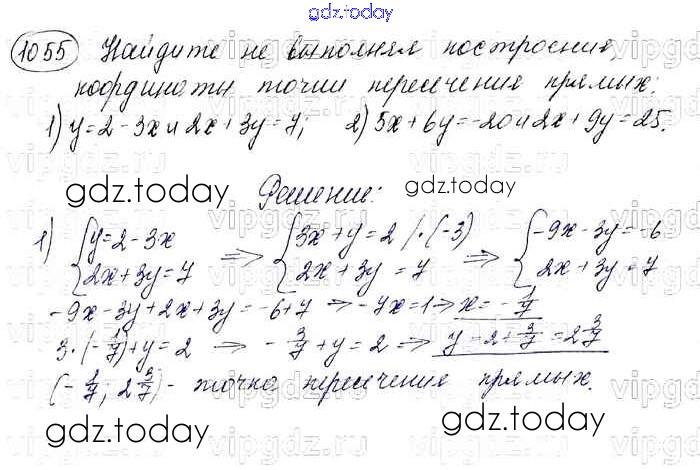 gdz.today
1055 Найдите не выполняя построения,
координаты точки пересечения прямых:
1) y=2-3x и 2x+3y=7; 2) 5x+6y=-20 и 2x+9y=25.
gdz.today Решение: gdz.today
1) {y=2-3x {2x+3y=7 => {3x+y=2 /·(-3) {2x+3y=7 => {-9x-3y=-6 {2x+3y=7
-9x-3y+2x+3y=-6+7 => -7x=1 => x=-1/7
3·(-1/7)+y=2 => -3/7+y=2 => y=2+3/7=2 3/7
(-1/7; 2 3/7) - точка пересечения прямых.
gdz.today gdz.today